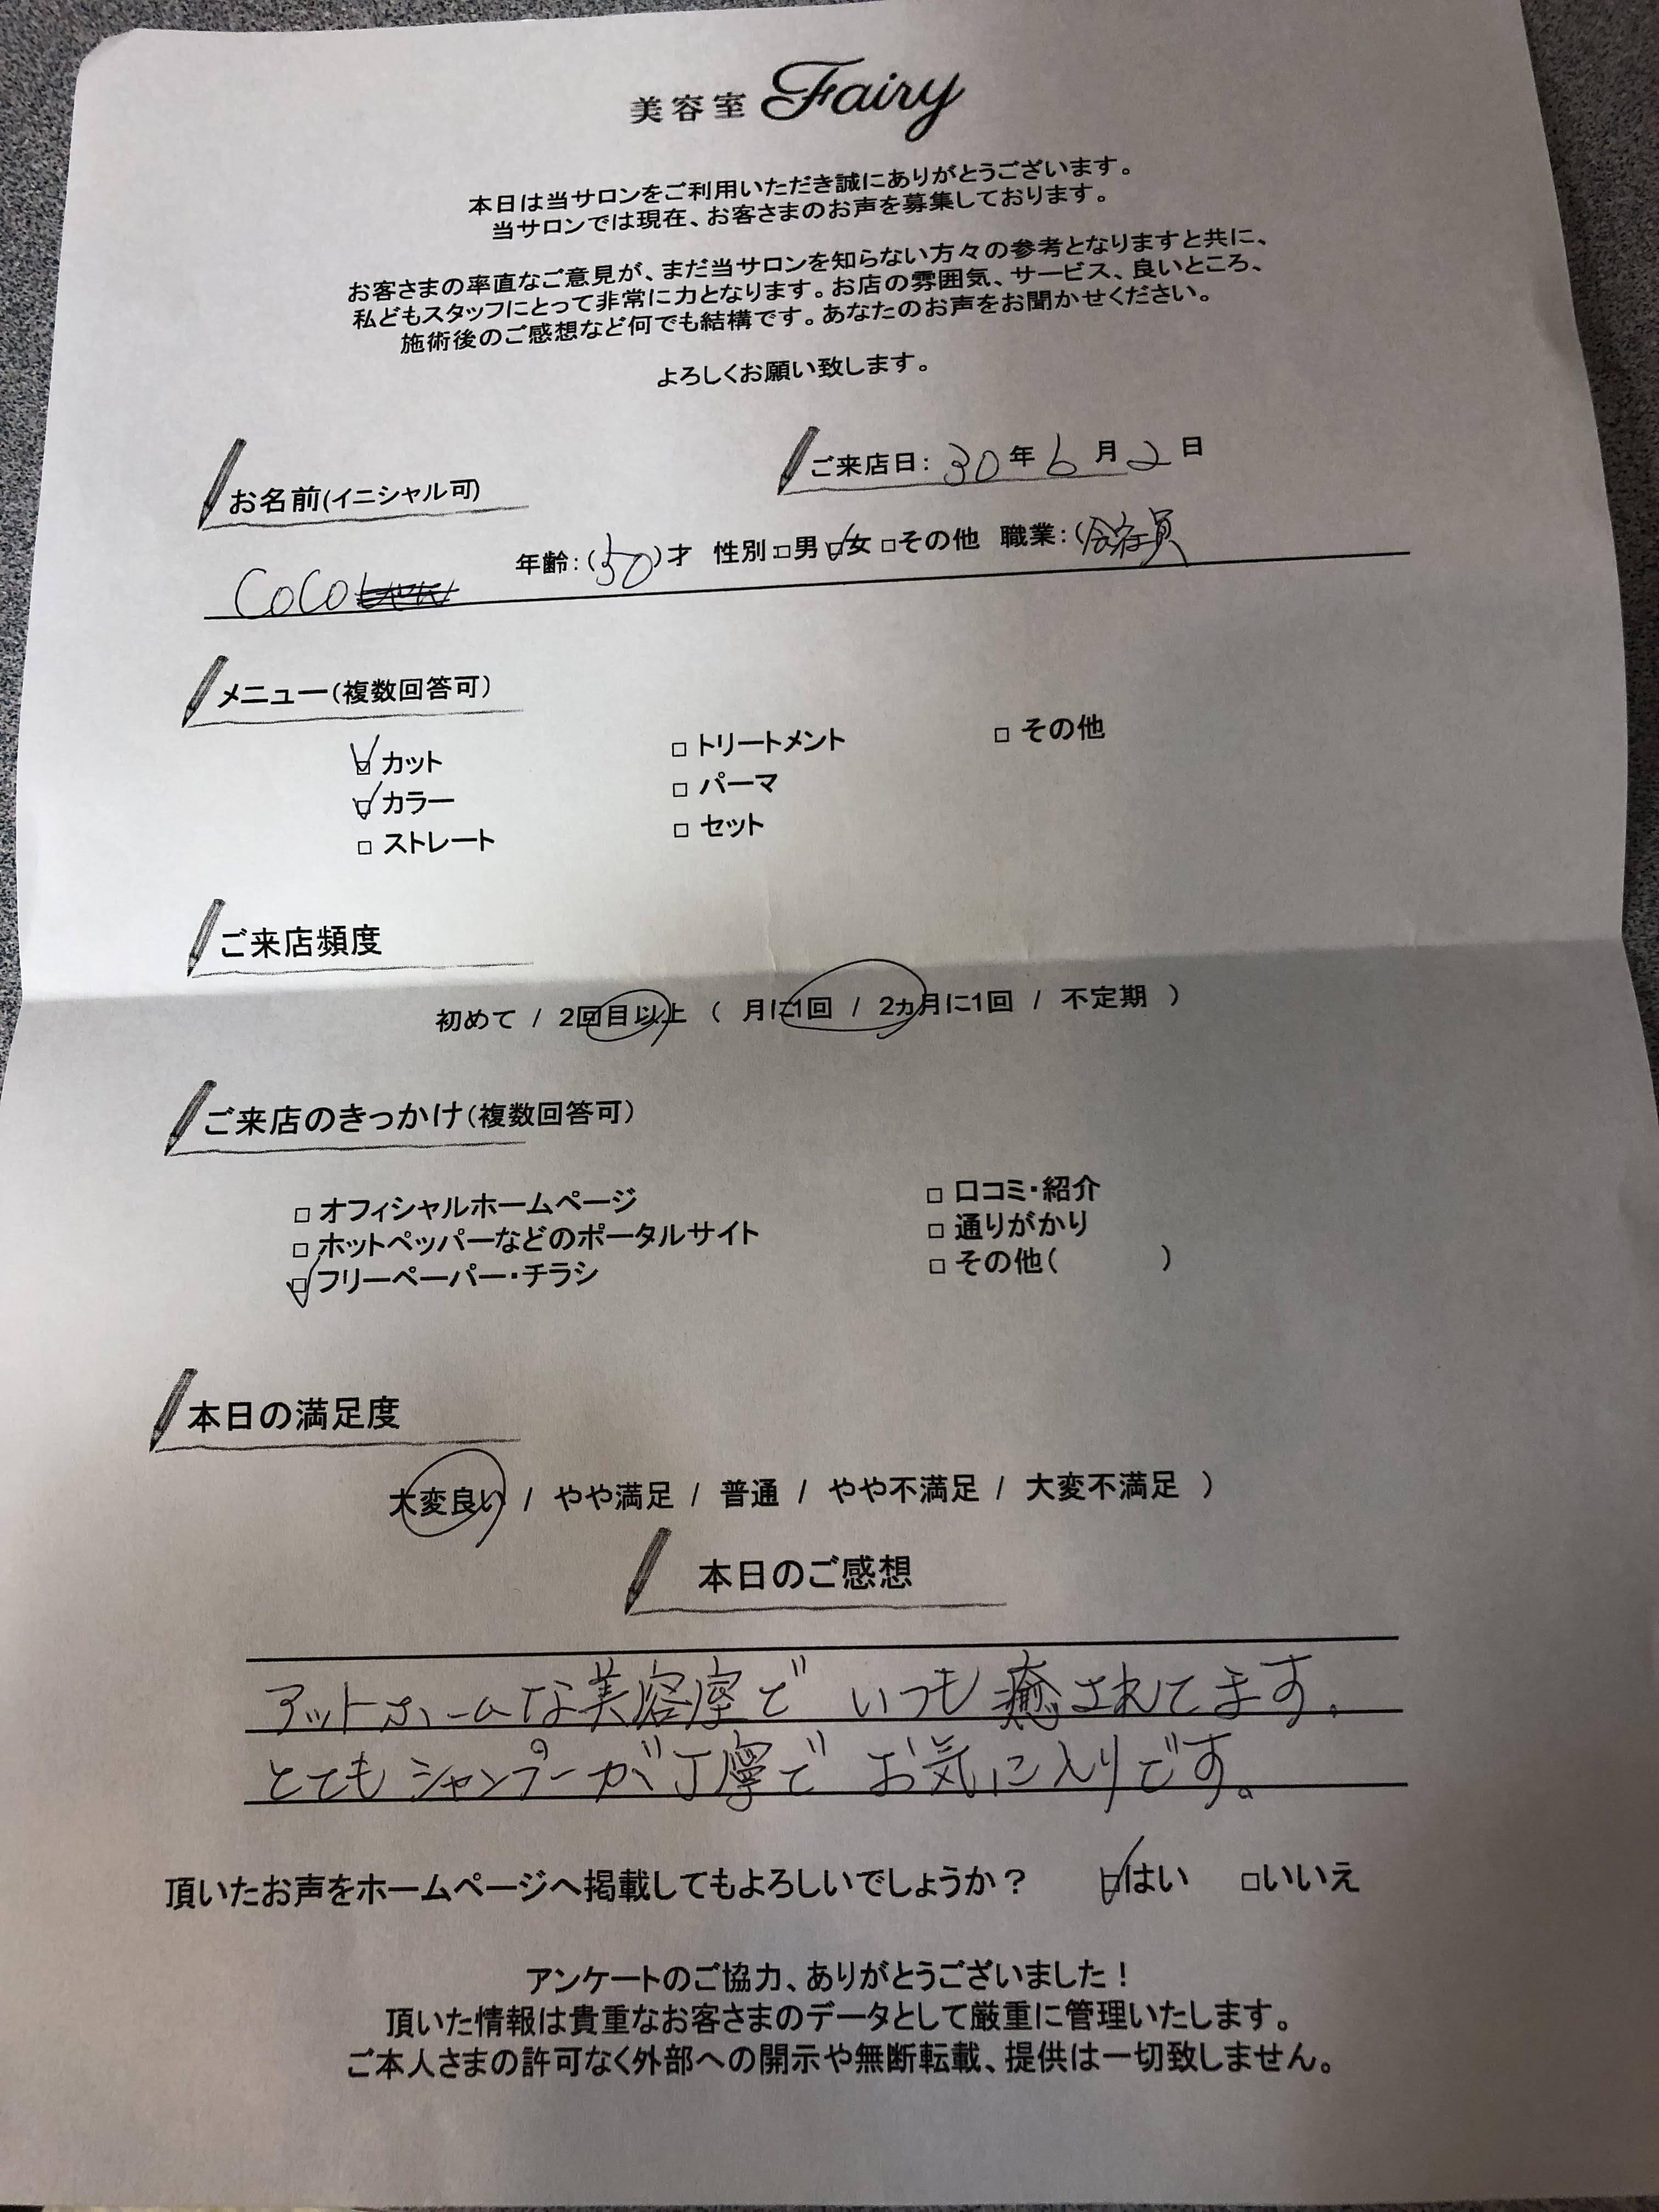 美容室 Fairy
本日は当サロンをご利用いただき誠にありがとうございます。
当サロンでは現在、お客さまのお声を募集しております。
お客さまの率直なご意見が、まだ当サロンを知らない方々の参考となりますと共に、
私どもスタッフにとって非常に力となります。お店の雰囲気、サービス、良いところ、
施術後のご感想など何でも結構です。あなたのお声をお聞かせください。
よろしくお願い致します。
ご来店日: 30年 6月 2日
お名前(イニシャル可)
年齢:(50)才 性別:□男 ☑女 □その他 職業:(会社員
COCO
メニュー(複数回答可)
☑ カット □ トリートメント □ その他
☑ カラー □ パーマ
□ ストレート □ セット
ご来店頻度
初めて / 2回目以上 ( 月に1回 / 2ヵ月に1回 / 不定期 )
ご来店のきっかけ(複数回答可)
□ オフィシャルホームページ □ 口コミ・紹介
□ ホットペッパーなどのポータルサイト □ 通りがかり
☑ フリーペーパー・チラシ □ その他( )
本日の満足度
大変良い / やや満足 / 普通 / やや不満足 / 大変不満足 )
本日のご感想
アットホームな美容室で いつも癒されてます。
とてもシャンプーが丁寧で お気に入りです。
頂いたお声をホームページへ掲載してもよろしいでしょうか? ☑はい □いいえ
アンケートのご協力、ありがとうございました!
頂いた情報は貴重なお客さまのデータとして厳重に管理いたします。
ご本人さまの許可なく外部への開示や無断転載、提供は一切致しません。